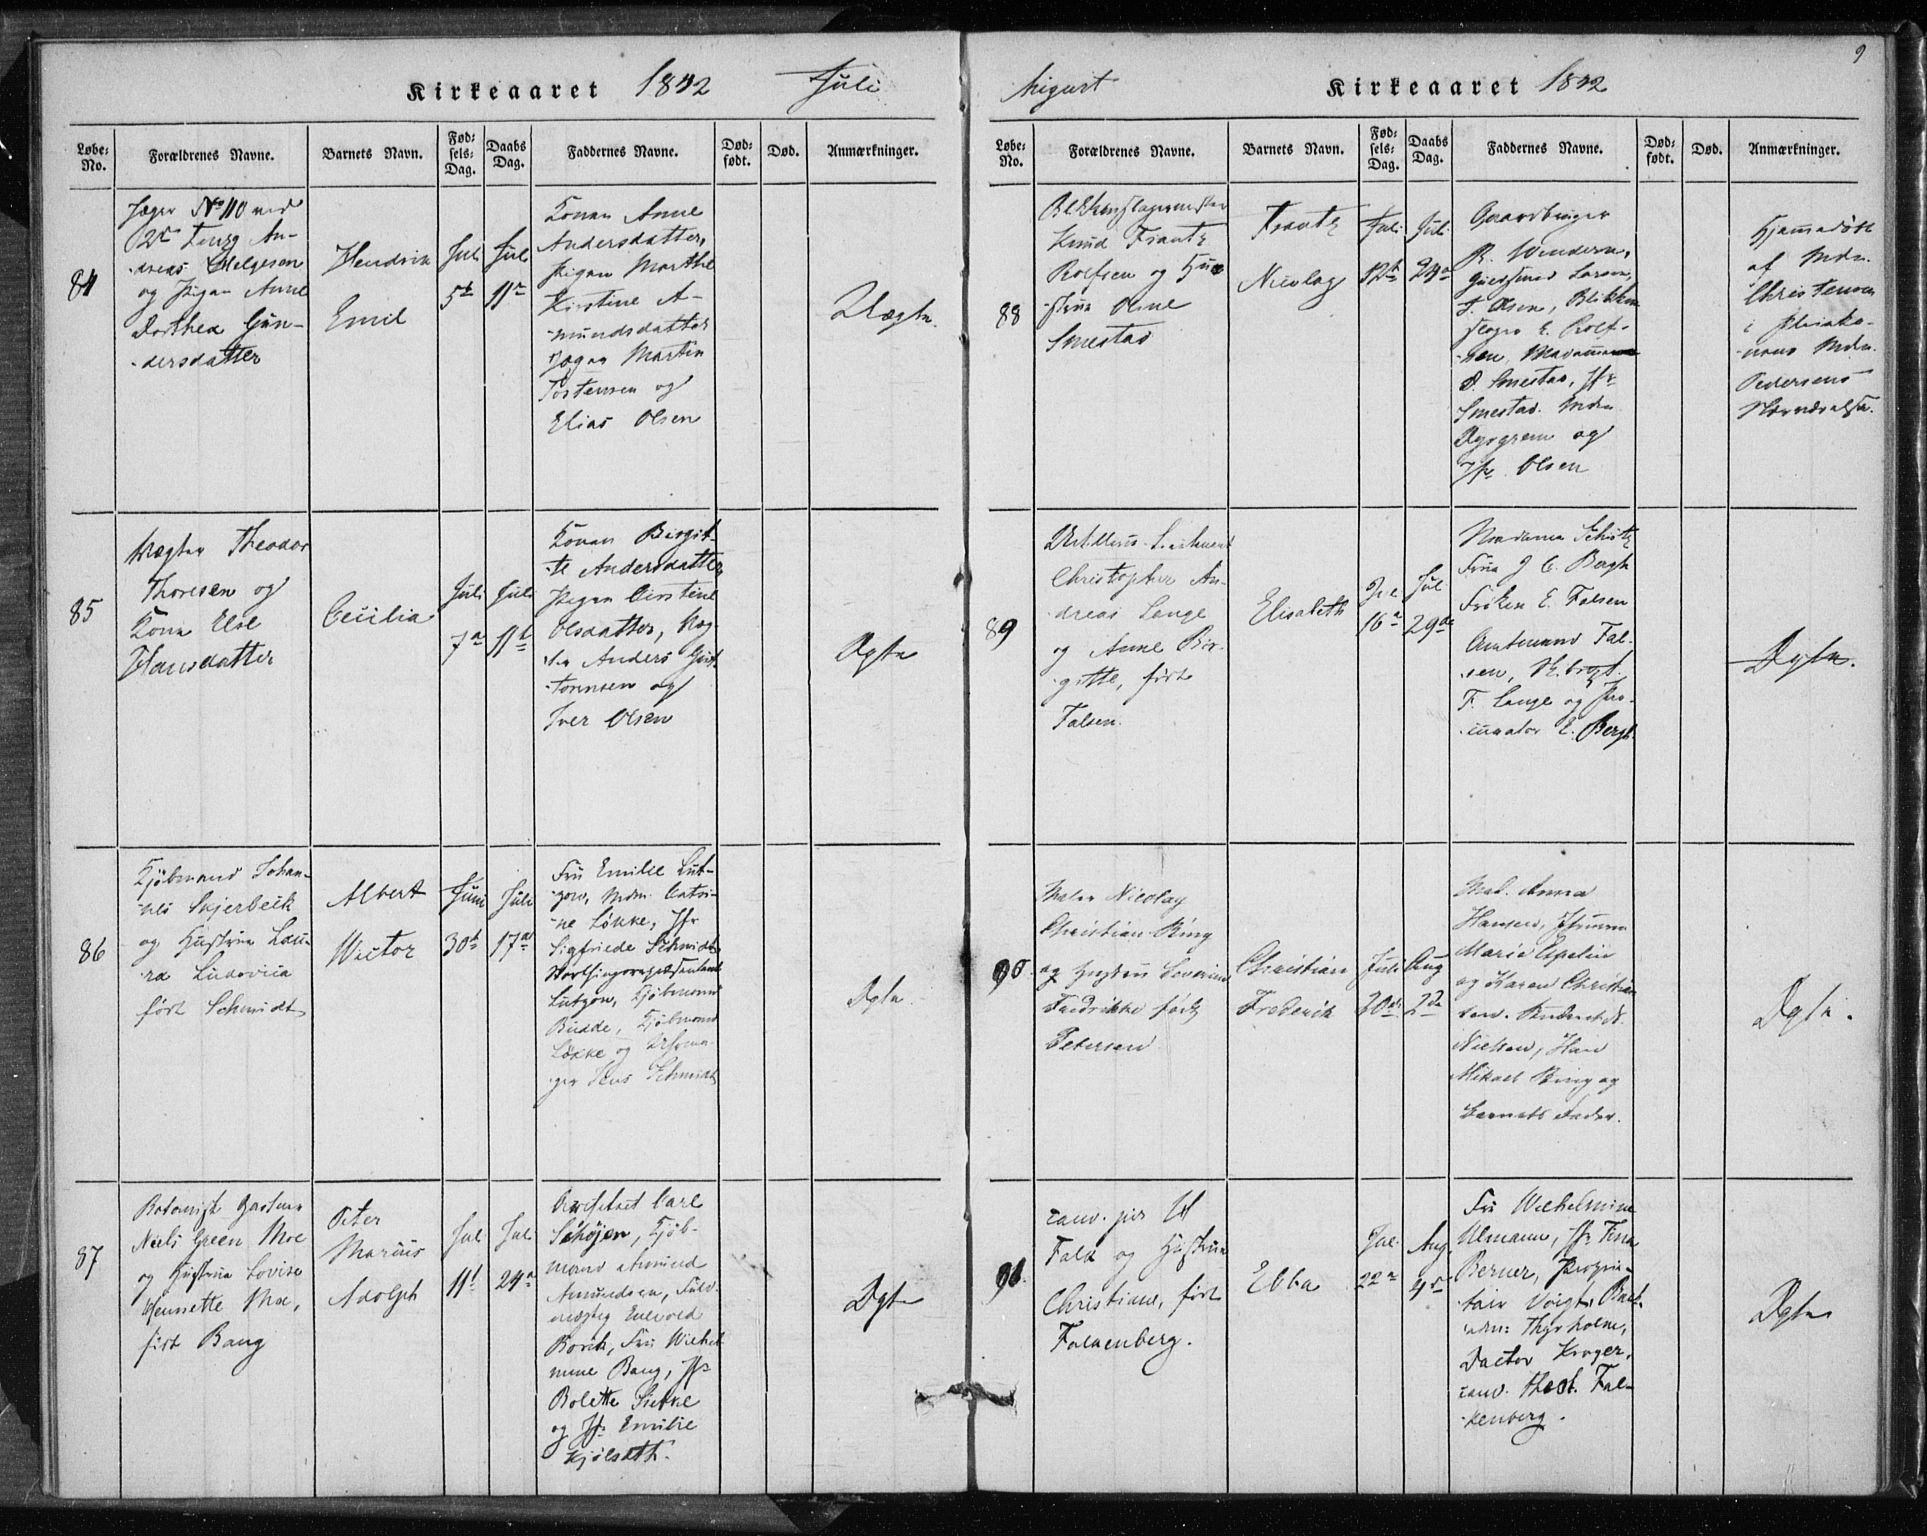 Kirkeaaret 1842 Juli
Løbe-No.
Forældrenes Navne.
Barnets Navn.
Fødsels-Dag.
Daabs Dag.
Faddernes Navne.
Dødfødt.
Død.
Anmærkninger.
84
Jæger No 110 ved
An-
dreas Helgesen
og Pigen Anne
Dorthea Gun-
dersdatter
Hendrik
Emil
Juli
5t
Juli
11te
Konen Anne
Andersdatter,
Pigen Marthe
Kirstine A-
mundsdatter
Jæger Martin
Tostensen og
Elias Olsen
Uægte.
85
Vægter Theodor
Thoresen og
Kone Else
Hansdatter
Cecilia
Juli
7de
Juli
11te
Konen Birgit-
te Andersdatter,
Pigen Kirstine
Olsdatter, Væg-
ter Anders
og
Iver Olsen
Ægte
86
Kjøbmand Johan-
nes Skjerbeck
og Hustrue Lau-
ra Ludovica
født Schmidt
Albert
Victor
Juni
30te
Juli
17de
Fru Emilie Lut-
zow, Mdm. Catri-
ne Løkke, Jfr
Sigfriede Schmidt
Lutzow, Kjøbmand
Budde, Kjøbmand
Løkke og
Jens Schmidt
Ægte.
87
Botanisk Gartner
Niels Green Moe
og Hustrue Lovise
Hennette Moe,
født Bang
Peter
Marius
Adolph
Juli
11te
Juli
24de
Carl
Schøjen, Kjøb-
mand Amund
Amundsen, Fuld-
mægtig Enevold
Borch, Fru Wilhel-
mine Bang, Jfr
Bolette Siebke
og Jfr Emilie
Kjølseth.
Ægte
9
August Kirkeaaret 1842
Løbe-No.
Forældrenes Navne.
Barnets Navn.
Fødsels-Dag.
Daabs Dag.
Faddernes Navne.
Dødfødt.
Død.
Anmærkninger.
88
Blikkenslagermester
Knud Frantz
Rolfsen og Hu-
strue Oline
Smestad
Frantz
Nicolay
Juli
12te
Juli
24de
Gaardbruger
Guldsmed Larsen,
T. Olsen, Blikken-
slager E. Rolf-
sen, Madamme
O. Smestad, Jfr
Smestad. Mdm
og
Jfr Olsen
Hjemmedøbt
af Mdm.
Christensen
i
Mdm.
Pedersens
Nærværelse.
89
Artilleri-Lieutnant
Christopher An-
dreas Lange
og Anne Bir-
gitte, født
Falsen.
Elisabeth
Jul
16de
Jul
29de
Madame Schøtz
Frue J C. Bergh
Frøken E. Falsen
Amtmand Fal-
sen,
F. Lange og Pro-
curator E. Bergh
Ægte.
90.
Maler Nicolay
Christian Bing
og Hustrue Severine
Fredrikke født
Petersen
Christian
Frederik
Juli
20de
Aug
2den
Mad. Anna
Hansen, Jfruerne
Marie
og Karen Christian-
sen.
Nielsen, Hans
Mikael Bing og
Barnets Fader.
Ægte.
91.
Cand. jur
Falck og Hustrue
Christiane, født
Falkenberg.
Ebba
Jul.
22de
Aug
4de
Fru Wilhelmine
Ulmann, Jfr Tina
Berner, Proprie-
tair Voigt,
Thyrholm,
Doctor Kroger,
Cand. theol. Fal-
kenberg.
Ægte